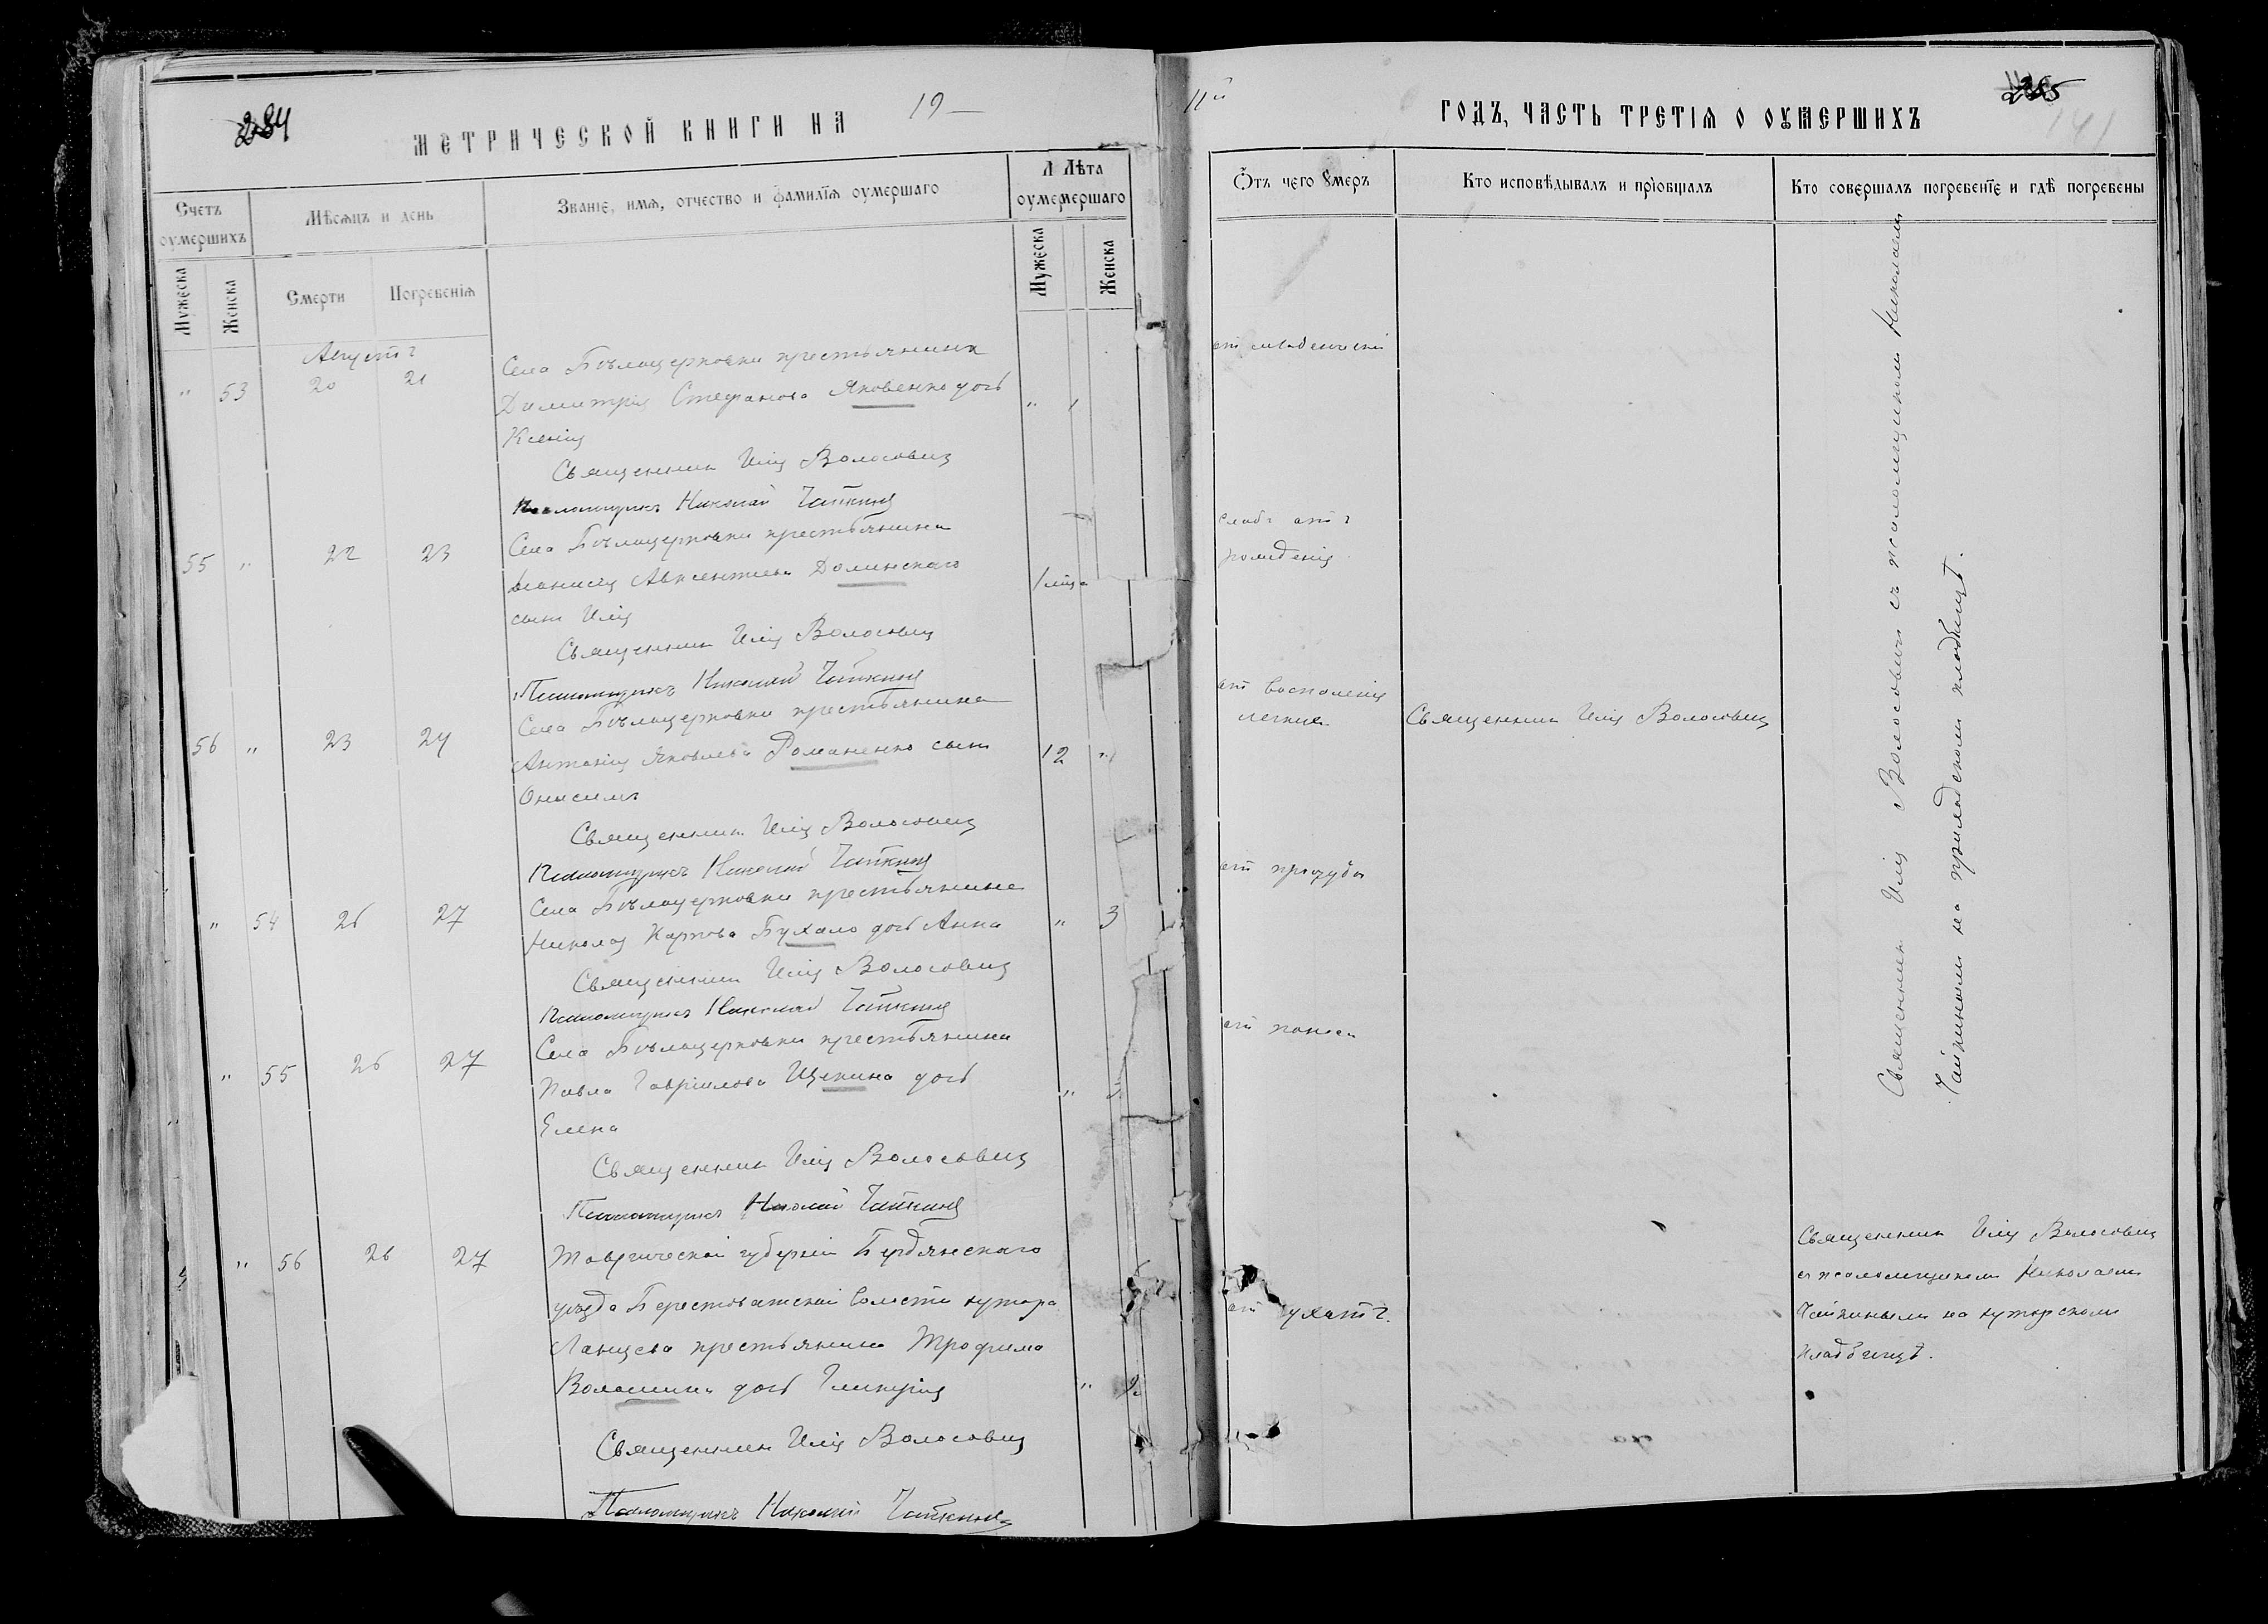 284
МЕТРИЧЕСКОЙ КНИГИ НА 19—
Счетъ оумершихъ
Мѣсяцъ и день
Званіе, имя, отчество и фамилія оумершаго
Лѣта оумершаго
Мужеска
Женска
Смерти
Погребенія
Мужеска
Женска
Августъ
" 53 20 21
Села Бѣлоцерковки крестьянина
Димитрія Стефанова Яковенко дочь " 1
Ксенія
Священникъ Илія Волосовичъ
Псаломщикъ Николай Чайкинъ
55 " 22 23
Села Бѣлоцерковки крестьянина
Авксентіева Долинскаго
сынъ Илія
Священникъ Илія Волосовичъ
Псаломщикъ Николай Чайкинъ
56 " 23 24
Села Бѣлоцерковки крестьянина
Антонія Яковлева Романенко сынъ 12 "
Онисимъ
Священникъ Илія Волосовичъ
Псаломщикъ Николай Чайкинъ
" 54 26 27
Села Бѣлоцерковки крестьянина
Николая Карпова Бухало дочь Анна " 3
Священникъ Илія Волосовичъ
Псаломщикъ Николай Чайкинъ
" 55 26 27
Села Бѣлоцерковки крестьянина
Павла Гавріилова Щекина дочь "
Елена
Священникъ Илія Волосовичъ
Псаломщикъ Николай Чайкинъ
" 56 26 27
Таврической губерніи Бердянскаго
уѣзда Берестоватской волости хутора
Ланцева крестьянина Трофима
Волошина дочь Гликерія "
Священникъ Илія Волосовичъ
Псаломщикъ Николай Чайкинъ
11й
ГОДЪ, ЧАСТЬ ТРЕТІЯ О ОУМЕРШИХЪ
285
141
Отъ чего умеръ
Кто исповѣдывалъ и пріобщалъ
Кто совершалъ погребеніе и гдѣ погребены
слабъ отъ
рожденія
отъ воспаленія
легкихъ
Священникъ Илія Волосовичъ
отъ простуды
отъ поноса
Священникъ Илія Волосовичъ съ псаломщикомъ Николаемъ
Чайкинымъ на приходскомъ кладбищѣ.
Священникъ Илія Волосовичъ
съ псаломщикомъ Николаемъ
Чайкинымъ на хуторскомъ
кладбищѣ.